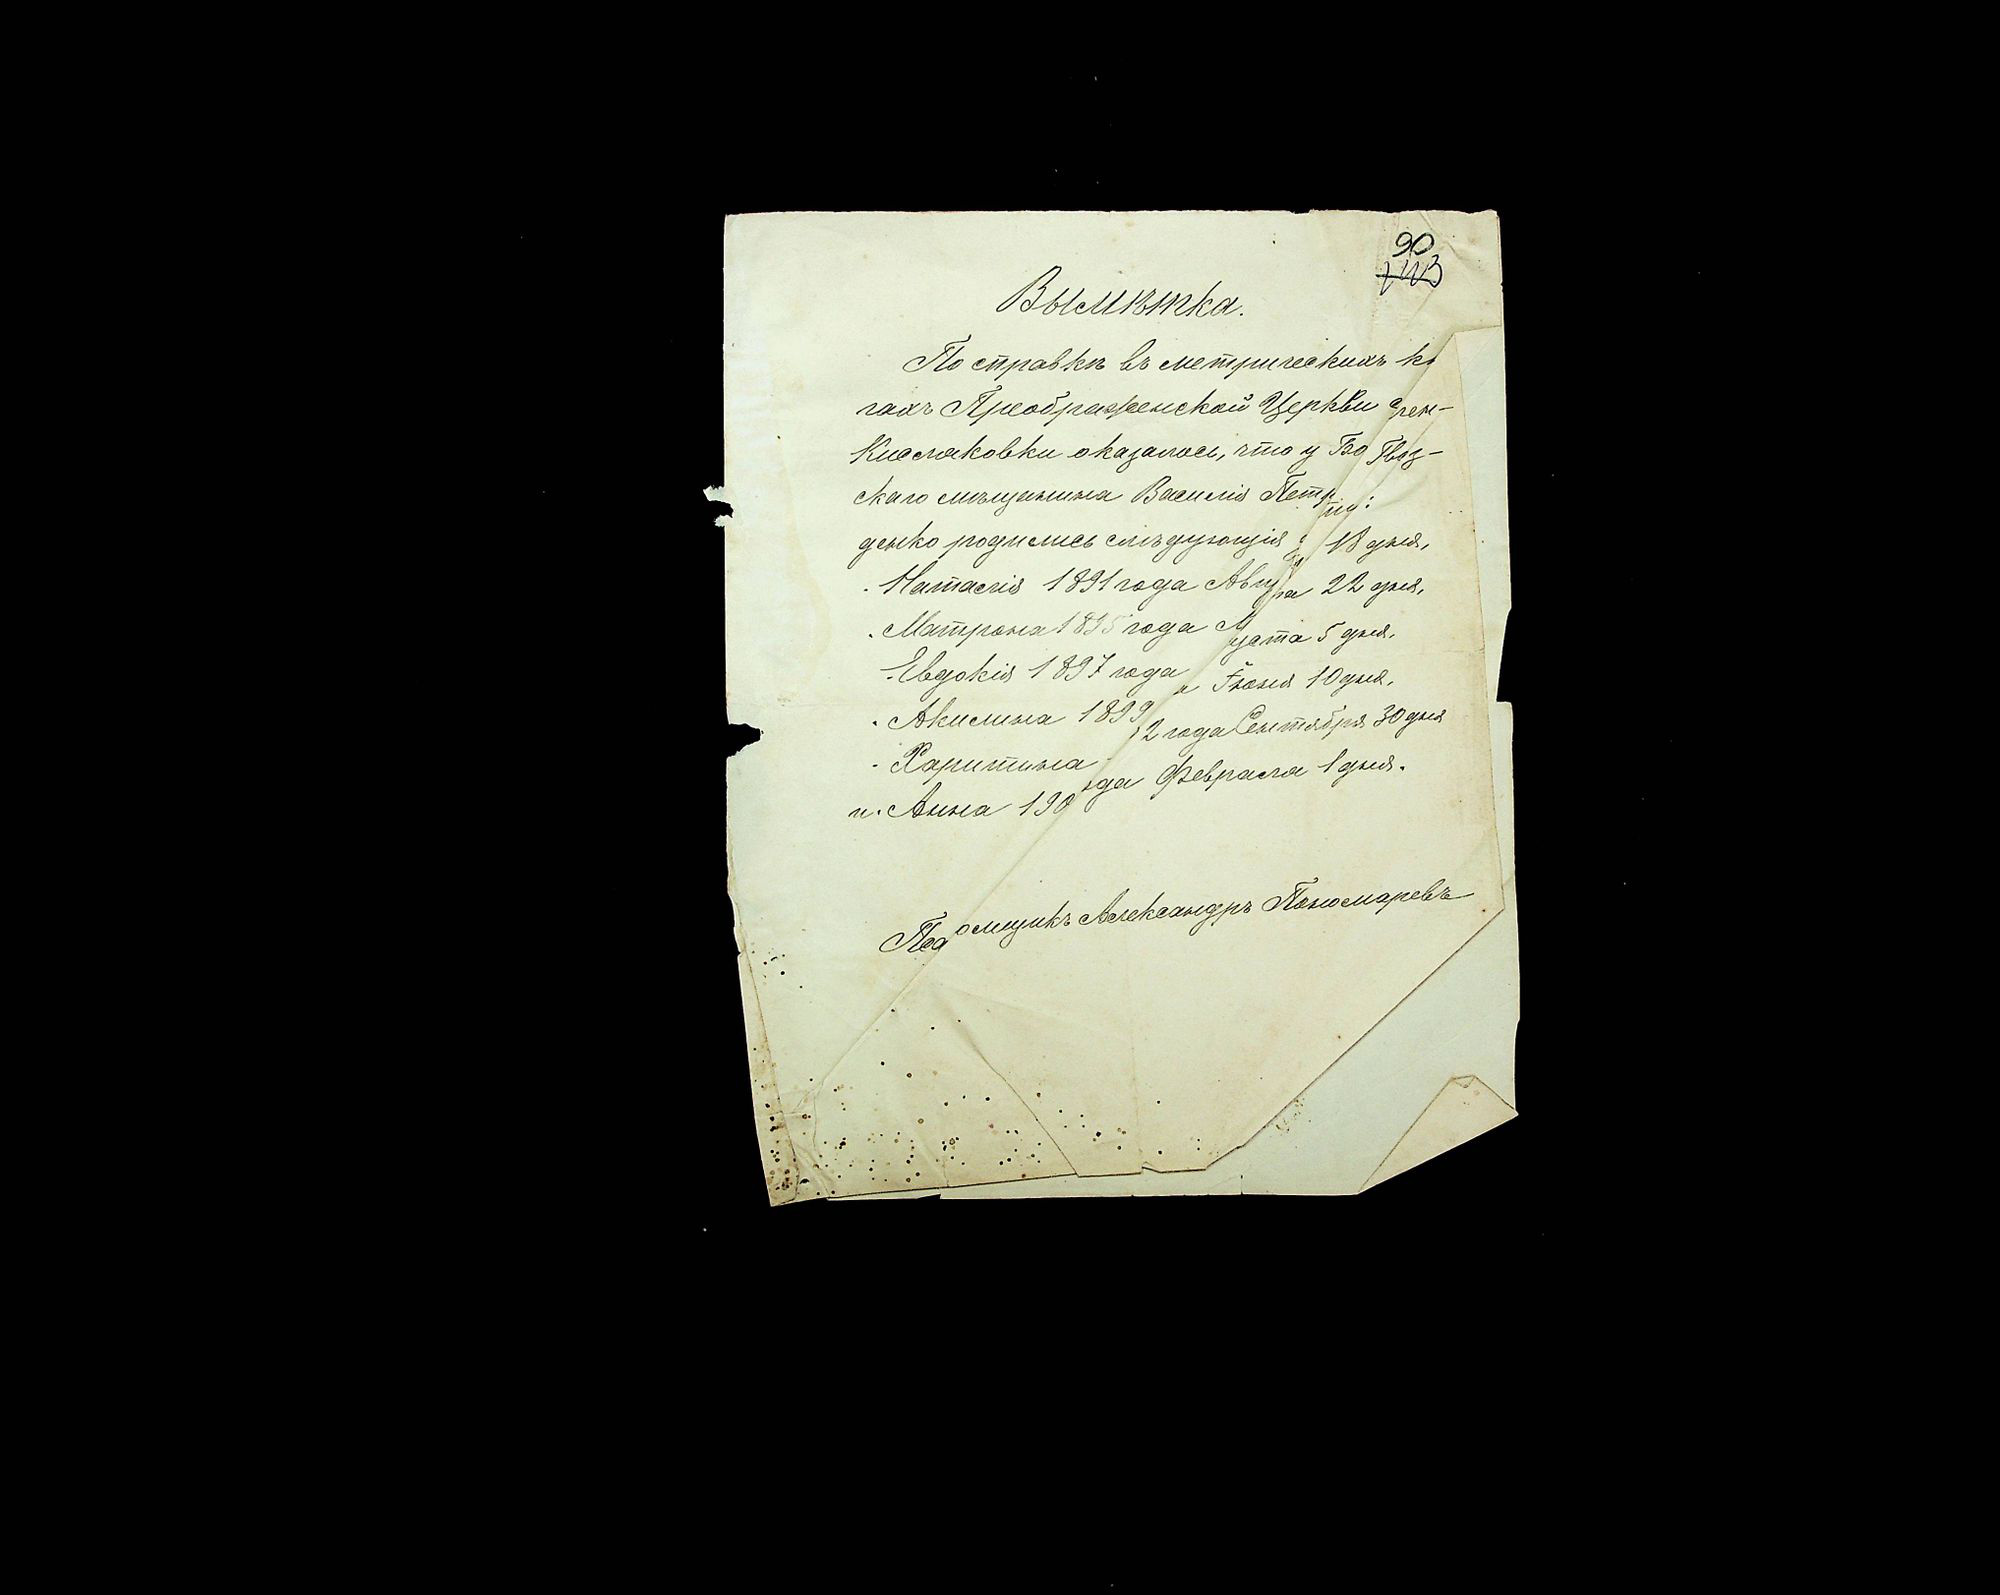 90
Вымѣтка.
По справкѣ въ метрическихъ кн
гахъ Преображенской Церкви
Кисляковки оказалось, что у Бо Гвоз-
скаго мѣщанина Василія Петр
денко родились слѣдующія
Наталія 1891 года Авгу 13 дня,
Матрона 1895 года М та 22 дня,
Евдокія 1897 года уста 5 дня,
Акилина 1899 Іюня 10 дня,
Харитина 2 года Сентября 30 дня
и. Анна 190 ода Февраля 1 дня.
Псаломщикъ Александръ Пономаревъ